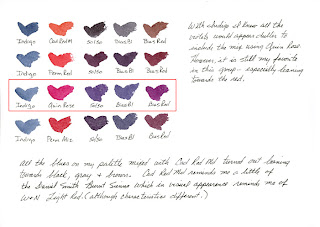 Indigo Cad Red M 50/50 Bias Bl Bias Red
Indigo Perm Red 50/50 Bias Bl Bias Red
Indigo Quin Rose 50/50 Bias Bl Bias Red
Indigo Perm Aliz 50/50 Bias Bl Bias Red
With indigo I knew all the
violets would appear duller to
include the mix using Quin Rose.
However, it is still my favorite
in this group - especially leaning
towards the red.
All the blues on my palette mixed with Cad Red Md turned out leaning
towards black, gray & brown. Cad Red Md reminds me a little of
the Daniel Smith Burnt Sienna which in visual appearance reminds me of
W+N Light Red. (although characteristics different.)